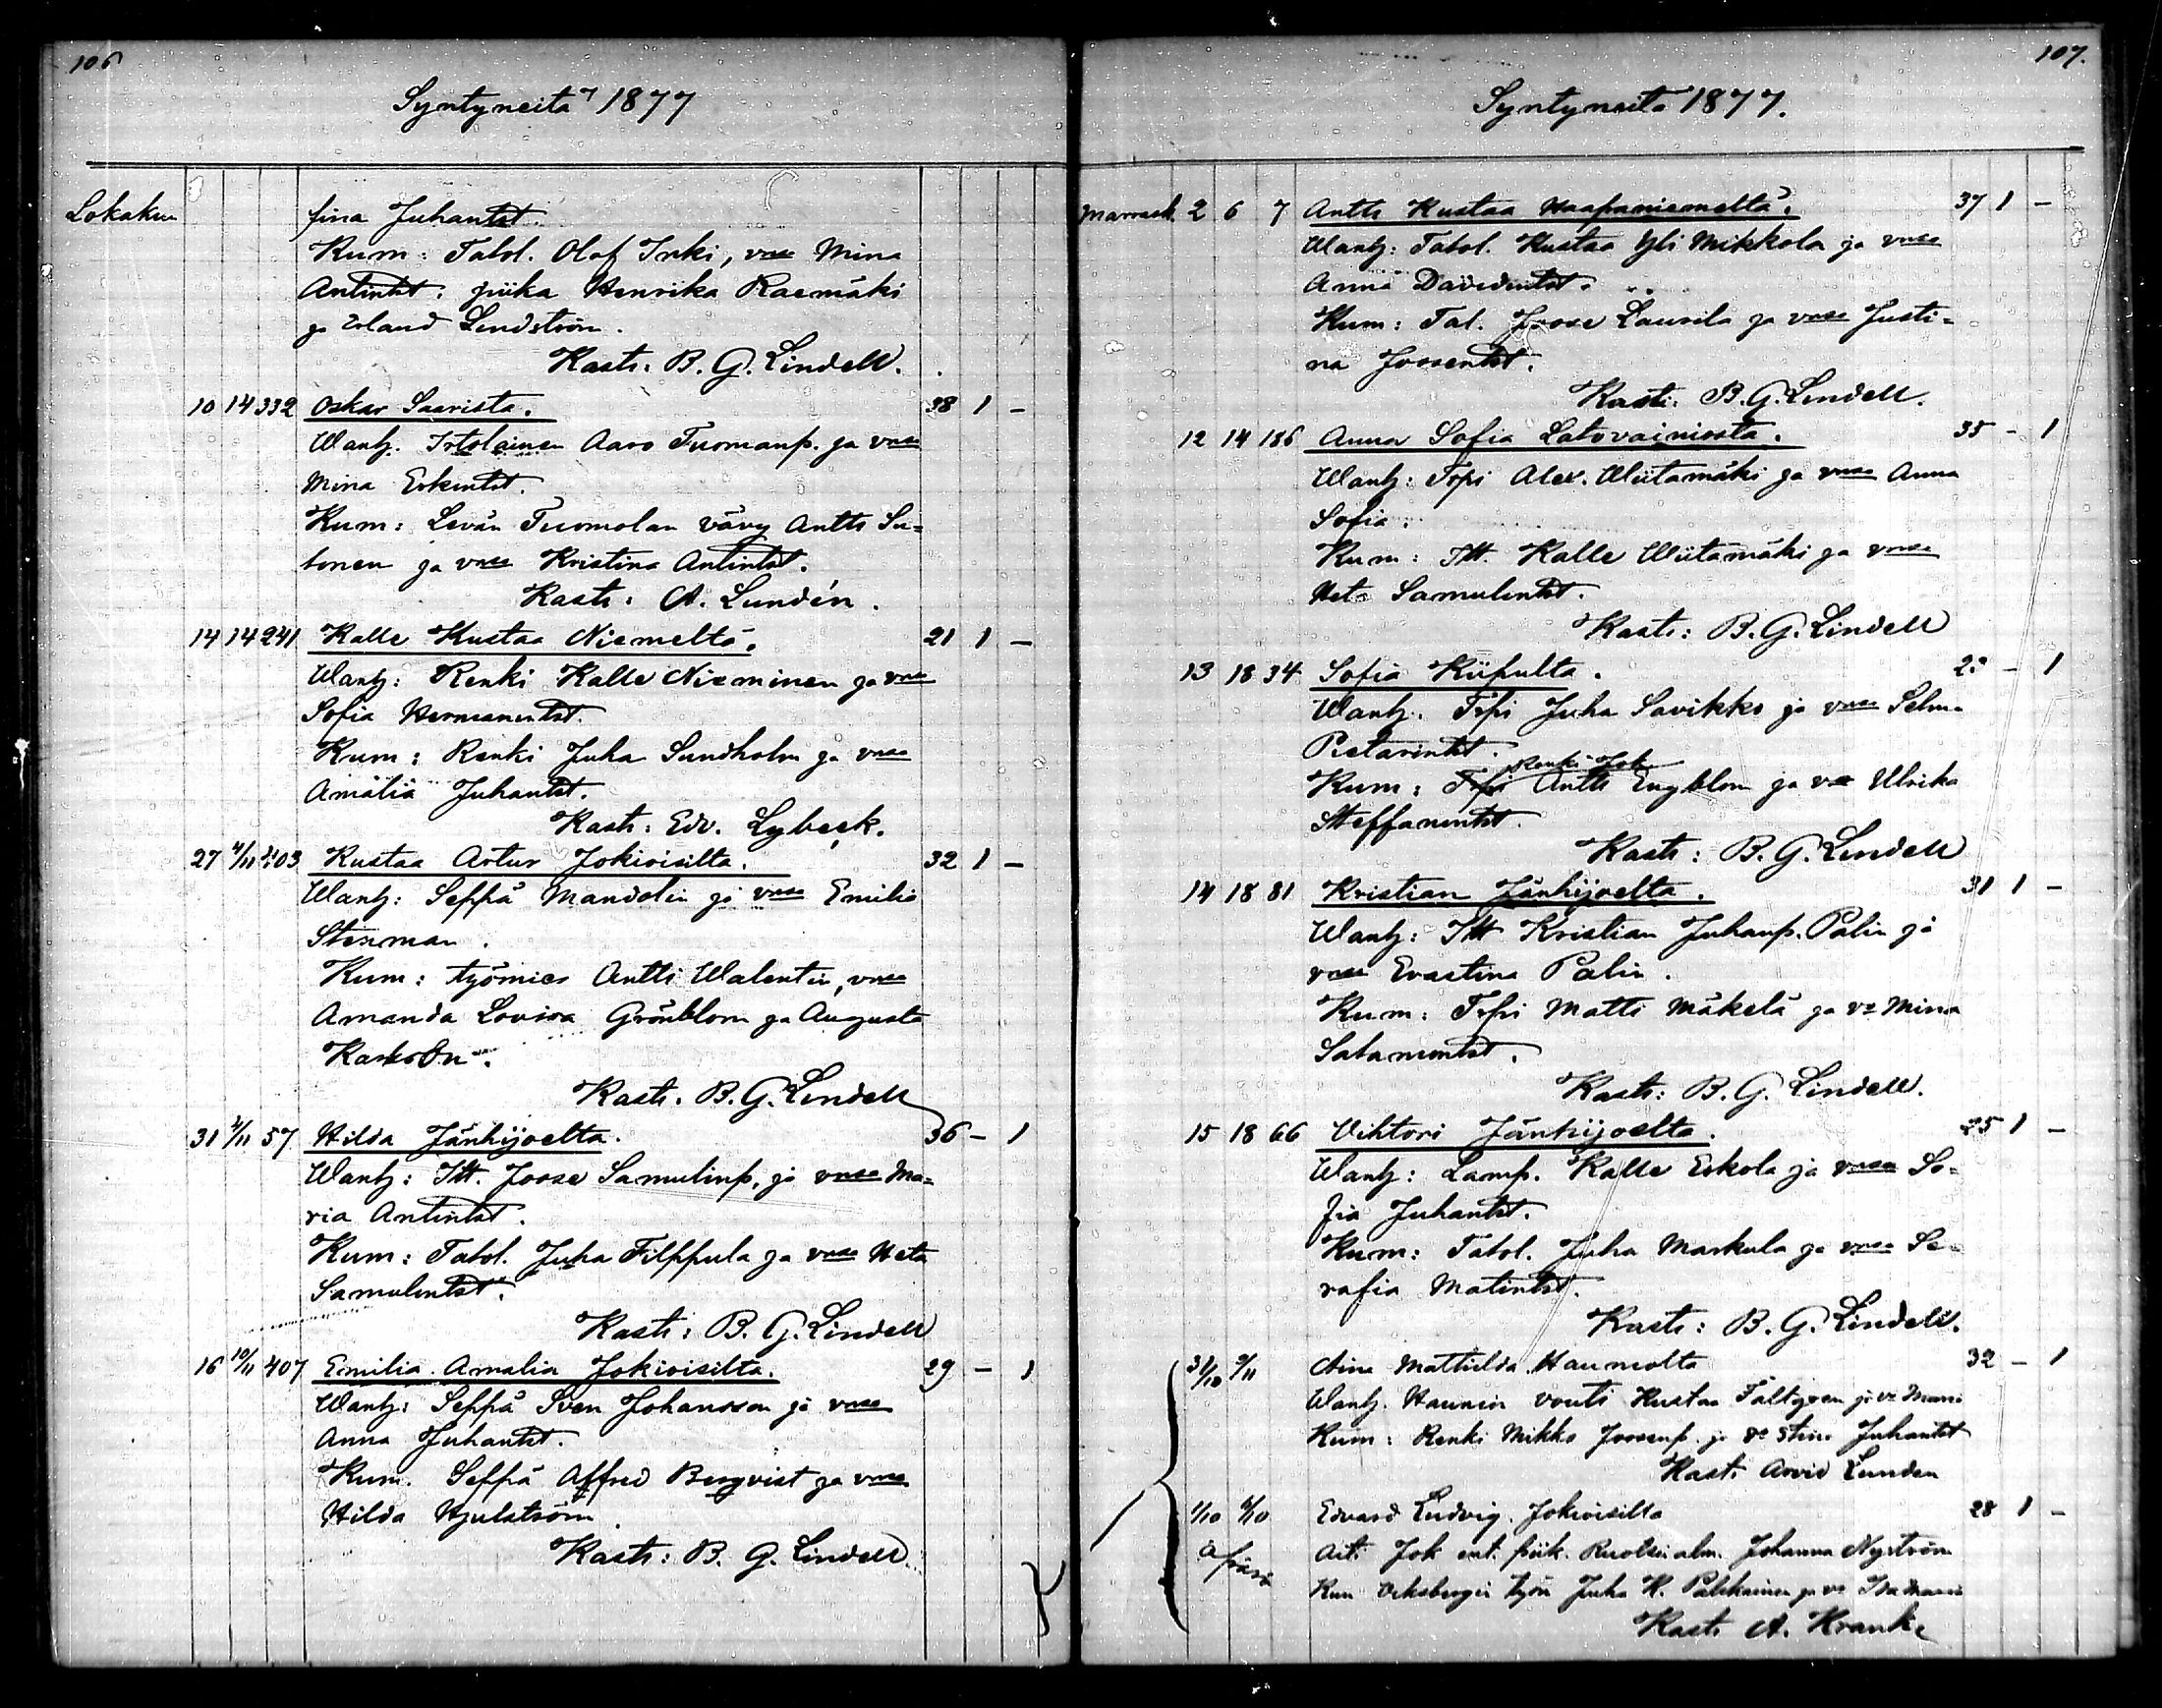 106
Syntyneitä 1877
Lokakuu fina Juhantyt.
Kum: Talol. Olof Inki, vmsa Mina
Antintyt. piika Henrika Raemäki
ja Erland Lindström.
Kasti: B. G. Lindell.
10 14 332 Oskar Saarista. 38 1 -
Wanh. Irtolainen Aaro Tuomanp. ja vmsa
Mina Erkintyt.
Kum: Levän Tuomolan vävy Antti Su=
tonen ja vmsa Kristina Antintyt.
Kasti: A. Lundén.
14 14 241 Kalle Kustaa Niemeltä. 21 1 -
Wanh: Renki Kalle Nieminen ja vmsa
Sofia Hermanintyt.
Kum: Renki Juha Sundholm ja vmsa
Amalia Juhantyt.
Kasti: Edv. Lybeck.
27 4/11 403 Kustaa Artur Jokioisilta. 32 1 -
Wanh: Seppä Mandolin ja vmsa Emilia
Stenman.
Kum: työmies Antti Walentin, vmsa
Amanda Lovisa Grönblom ja Augusta
Kasti. B. G. Lindell
31 4/11 57 Hilda Jänhijoelta. 36 - 1
Wanh: Itt. Joose Samulinp. ja vmsa Ma=
ria Antintyt.
Kum: Talol. Juha Filppula ja vmsa Heta
Samulintyt.
Kasti: B. G. Lindell
16 10/11 407 Emilia Amalia Jokioisilta. 29 - 1
Wanh: Seppä Sven Johansson ja vmsa
Anna Juhantyt.
Kum. Seppä Alfred Bergvist ja vmsa
Hilda Hjulström.
Kasti: B. G. Lindell.
107.
Syntyneitä 1877.
Marrask. 2 6 7 Antti Kustaa Haapaniemeltä. 37 1 -
Wanh: Talol. Kustaa Yli Mikkola ja vmsa
Anna Davidintyt.
Kum: Tal. Joose Laurila ja vmsa Justi=
na Joosentyt.
Kasti: B. G. Lindell.
12 14 186 Anna Sofia Latovainiosta. 35 - 1
Wanh: Trpi Alex. Wiitamäki ja vmsa Anna
Sofia.
Kum: Itt. Kalle Wiitamäki ja vmsa
Heta Samulintyt.
Kasti: B. G. Lindell
13 18 34 Sofia Kiipulta. - 1
Wanh. Trpi Juha Savikko ja vmsa Selma
Pietarintyt.
Renki Jok
Kum: Trpi Antti Engblom ja va Ulrika
Steffanintyt.
Kasti: B. G. Lindell
14 18 81 Kristian Jänhijoelta. 31 1 -
Wanh: Itt Kristian Juhanp. Palin ja
vmsa Evastina Palin.
Kum: Trpi Matti Mäkelä ja va Mina
Salamontyt.
Kasti: B. G. Lindell.
15 18 66 Vihtori Jänhijoelta. 25 1 -
Wanh: Lamp. Kalle Eskola ja vmsa So=
fia Juhantyt.
Kum: Talol. Juha Markula ja vmsa Se=
rafia Matintyt.
Kasti: B. G. Lindell.
31/10 9/11 Aina Mathilda Hauniolta 32 - 1
Wanh. Haunion vouti Kustaa Fältgren ja va Maria
Kum: Renki Mikko Joosenp. ja va Stina Juhantyt
Kasti Arvid Lunden
1/10 6/10 Edvard Ludvig. Jokioisilta 28 1 -
Äiti Jok ent. piik. Ruotsin alm. Johanna Nyström
Kasti A. Krank